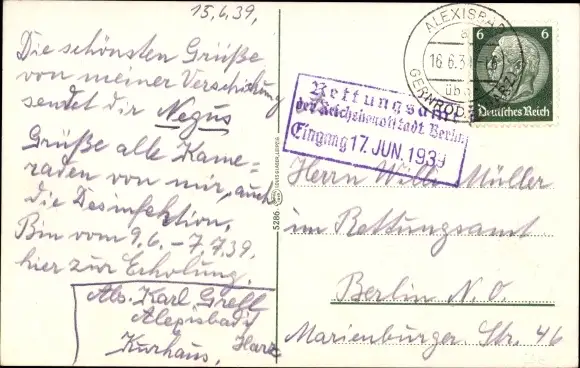 15.6.39,
Die schönsten Grüße
von meiner Verschickung
sendet dir Negus
Grüße alle Kame-
raden von mir, auch
die Desinfektion.
Bin vom 9.6. – 7.7.39.
hier zur Erholung.
Abs. Karl Greff
Alexisbad
Kurhaus, Harz
5286
ALEXISBAD
16.6.39
über
GERNRODE (HARZ)
6 6
Deutsches Reich
Rettungsamt
der Reichshauptstadt Berlin
Eingang 17. JUN. 1939
Herrn Willi Müller
im Rettungsamt
Berlin N.O.
Marienburger Str. 46